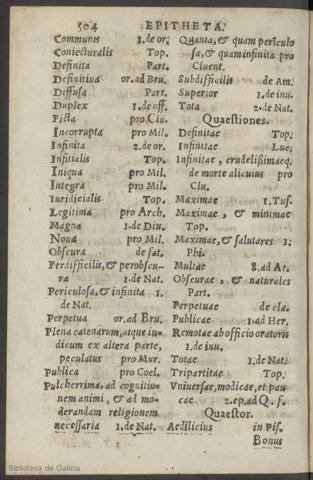 504 EPITHETA.
Communis 1.de or.
Coniecturalis Top.
Definita Part.
Definitiua or.ad Bru.
Diffusa Part.
Duplex 1.de off.
Ficta pro Clu.
Incorrupta pro Mil.
Infinita 2.de or.
Infitialis Top.
Iniqua pro Mil.
Integra pro Mil.
Iuridicialis Top.
Legitima pro Arch.
Magna 1.de Diu.
Noua pro Mil.
Obscura de fat.
Perdifficilis, & perobscura 1.de Nat.
Periculosa, & infinita 1.
de Nat.
Perpetua or.ad Bru.
Plena catenarum, atque iudicum ex altera parte,
peculatus pro Mur.
Publica pro Coel.
Pulcherrima, ad cognitionem animi, & ad moderandam religionem
necessaria 1.de Nat.
Quanta, & quam periculosa, & quam infinita pro
Cluent.
Subdifficilis de Am.
Superior 1.de inu.
Tota 2.de Nat.
Quaestiones.
Definitae Top.
Infinitae Luc.
Infinitae, crudelißimaeq.
de morte alicuius pro
Clu.
Maximae 1.Tus.
Maximae, & minimae
Top.
Maximae, & salutares 1;
Phi.
Multae 8.ad At.
Obscurae, & naturales
Part.
Perpetuae de cla.
Publicae 1.ad Her.
Remotae ab officio oratoris
1.de inu.
Totae 1.de Nat.
Tripartitae Top.
Vniuersae, modicae, et paucae 2.ep.ad Q.f.
Quaestor.
Aedilicius in Pis.
Bonus
Biblioteca de Galicia